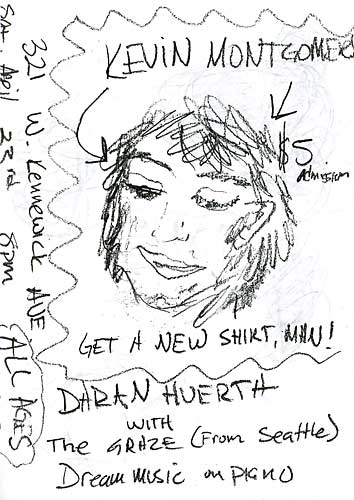 KEVIN MONTGOMERY
$5
admission
GET A NEW SHIRT, MAN!
DARAN HUERTA
WITH
The GRAZE (From Seattle)
Dream Music on PIANO
321 W. Kennewick AVE
Sat. April 23rd 8pm
ALL AGES